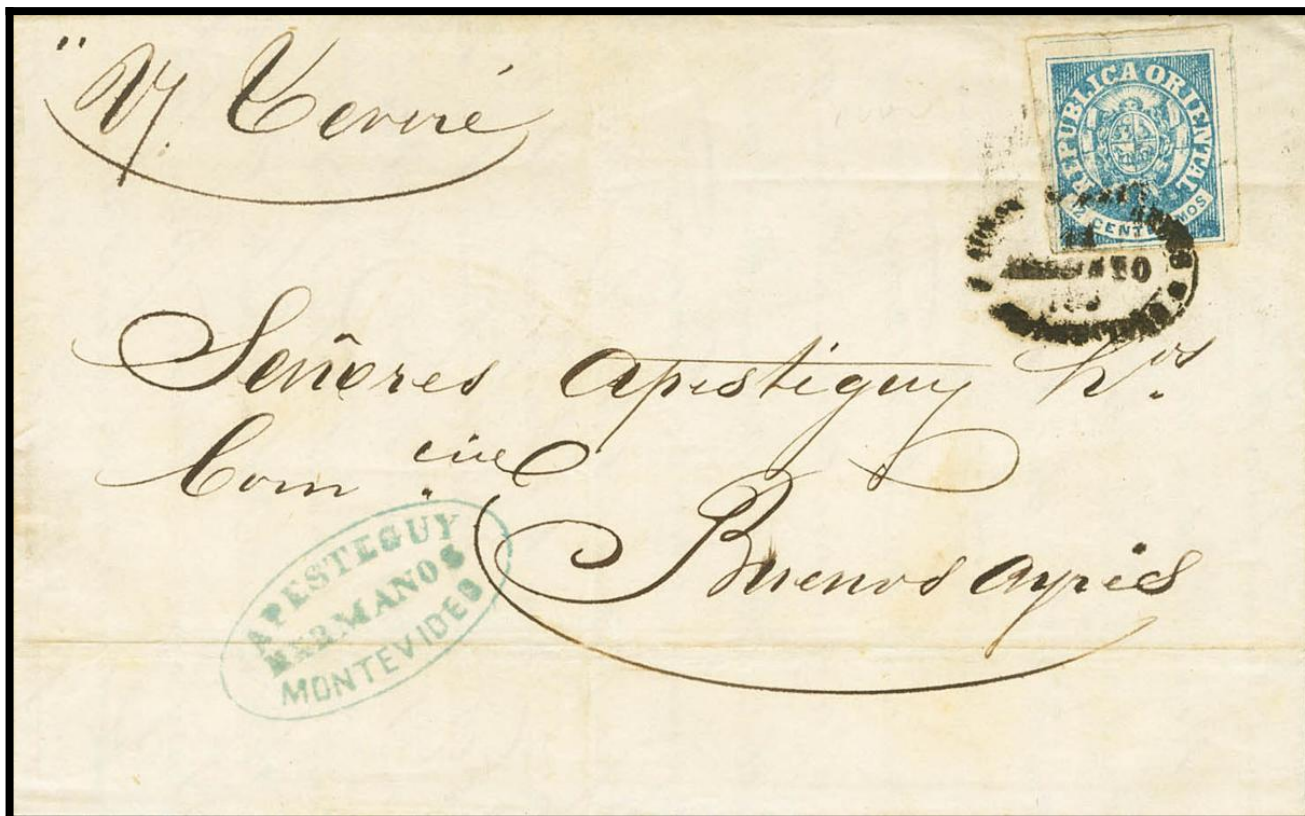 "Vf.
REPUBLICA ORIENTAL
12 CENTESIMOS
Señores Apestiguy h.os
Com
Buenos Ayres
APESTEGUY
HERMANOS
MONTEVIDEO